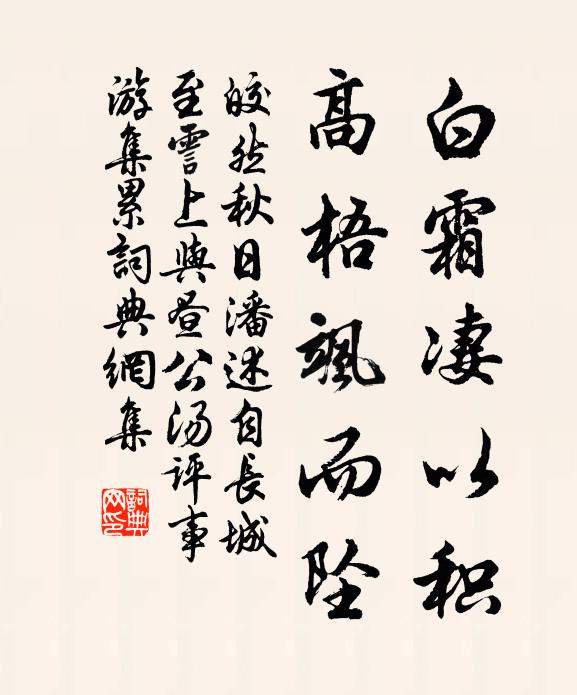 白霜凄以积
高梧飒而坠
皎然秋日潘述自長城
至霅上與昼公汤评事
游集累詞典網集
詞典网印